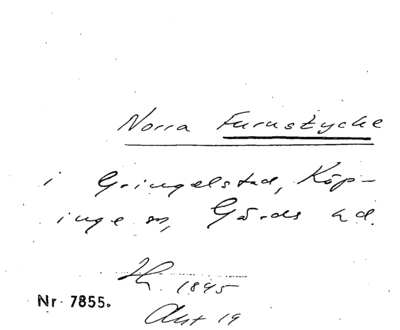 Norra Furustycke
i Gringelstad, Köp-
inge sn, Gärds hd.
H. 1845
Nr 7855.
Akt 19